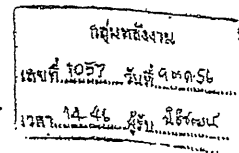 กลุ่มพลังงาน
เลขที่ 1057 วันที่ 9 ตค. 56
เวลา 14.46 ผู้รับ